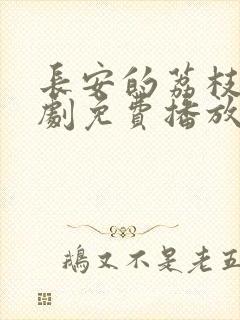 長安的荔枝
劇免費播放
鵝又不是老五